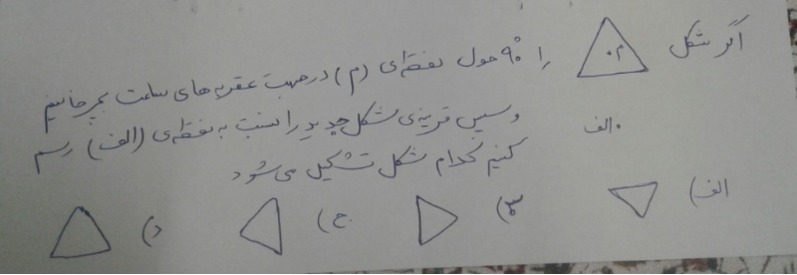 اگر شکل م را ۹۰° حول نقطه‌ی (م) در جهت عقربه های ساعت بچرخانیم
و سپس قرینه‌ی شکل جدید را نسبت به نقطه‌ی (الف) رسم
الف
کنیم کدام شکل تشکیل می شود
الف) ب) ج) د)